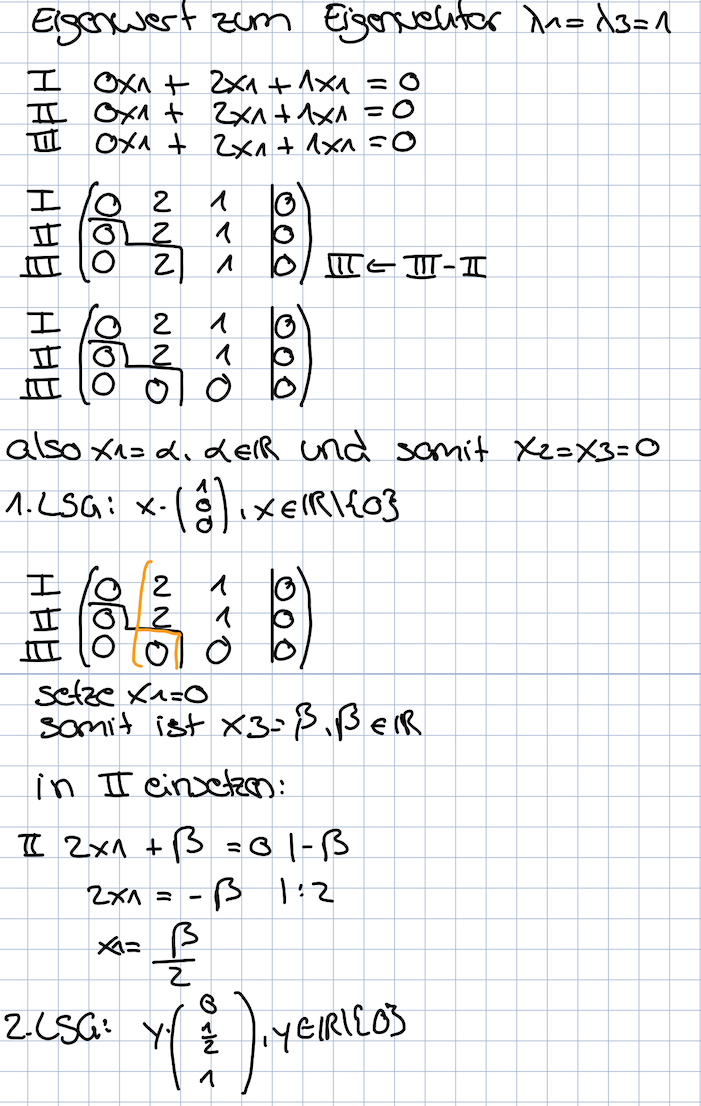 Eigenwert zum Eigenvektor λ1=λ3=1
I 0x1 + 2x1 + 1x1 = 0
II 0x1 + 2x1 + 1x1 = 0
III 0x1 + 2x1 + 1x1 = 0
I (0 2 1 | 0)
II (0 2 1 | 0)
III (0 2 1 | 0) III ← III - II
I (0 2 1 | 0)
II (0 2 1 | 0)
III (0 0 0 | 0)
also x1 = α, α∈ℝ und somit x2=x3=0
1.LSG: x·(1 0 0), x∈ℝ\{0}
I (0 2 1 | 0)
II (0 2 1 | 0)
III (0 0 0 | 0)
setze x1=0
somit ist x3=β, β∈ℝ
in II einsetzen:
II 2x1 + β = 0 |-β
2x1 = -β |:2
x1 = β/2
2.LSG: y·(0 1/2 1), y∈ℝ\{0}